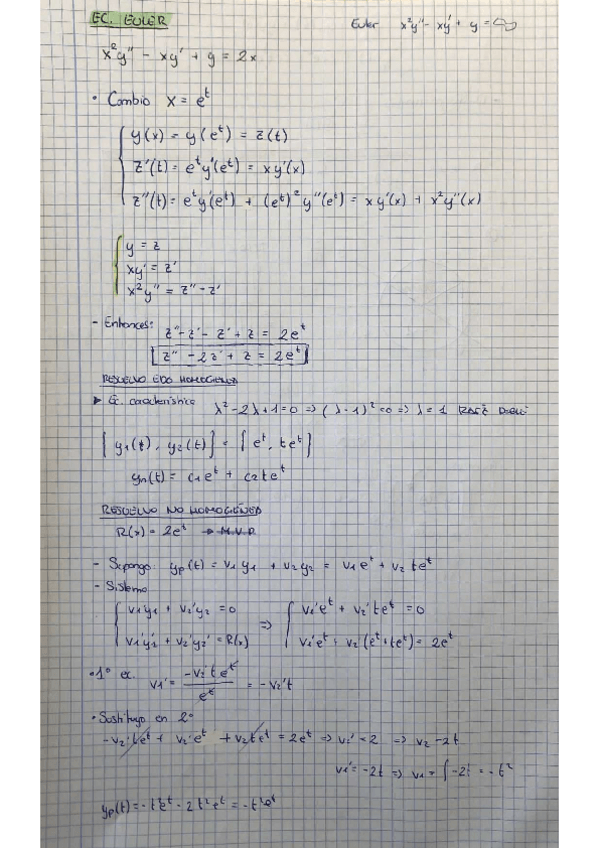 EC. EULER
Euler x²y'' - xy' + y =
x²y'' - xy' + y = 2x
• Cambio x = e^t
y(x) = y(e^t) = z(t)
z'(t) = e^t y'(e^t) = xy'(x)
z''(t) = e^t y'(e^t) + (e^t)² y''(e^t) = xy'(x) + x²y''(x)
y = z
xy' = z'
x²y'' = z'' - z'
- Entonces: z'' - z' - z' + z = 2e^t
z'' - 2z' + z = 2e^t
RESUELVO EDO HOMOGENEA
▶ Ec. característica λ² - 2λ + 1 = 0 => (λ - 1)² = 0 => λ = 1 RAÍZ DOBLE
{y₁(t), y₂(t)} = {e^t, te^t}
yh(t) = c₁e^t + c₂te^t
RESUELVO NO HOMOGÉNEA
R(x) = 2e^t → M.V.P.
- Supongo yp(t) = v₁y₁ + v₂y₂ = v₁e^t + v₂te^t
- Sistema
v₁'y₁ + v₂'y₂ = 0 => v₁'e^t + v₂'te^t = 0
v₁'y₁' + v₂'y₂' = R(x) v₁'e^t + v₂'(e^t + te^t) = 2e^t
• 1º ec. v₁' = -v₂'te^t / e^t = -v₂'t
• Sustituyo en 2º
-v₂'te^t + v₂'e^t + v₂'te^t = 2e^t => v₂' = 2 => v₂ = 2t
v₁' = -2t => v₁ = ∫-2t = -t²
yp(t) = -t²e^t - 2t²e^t = -t²e^t